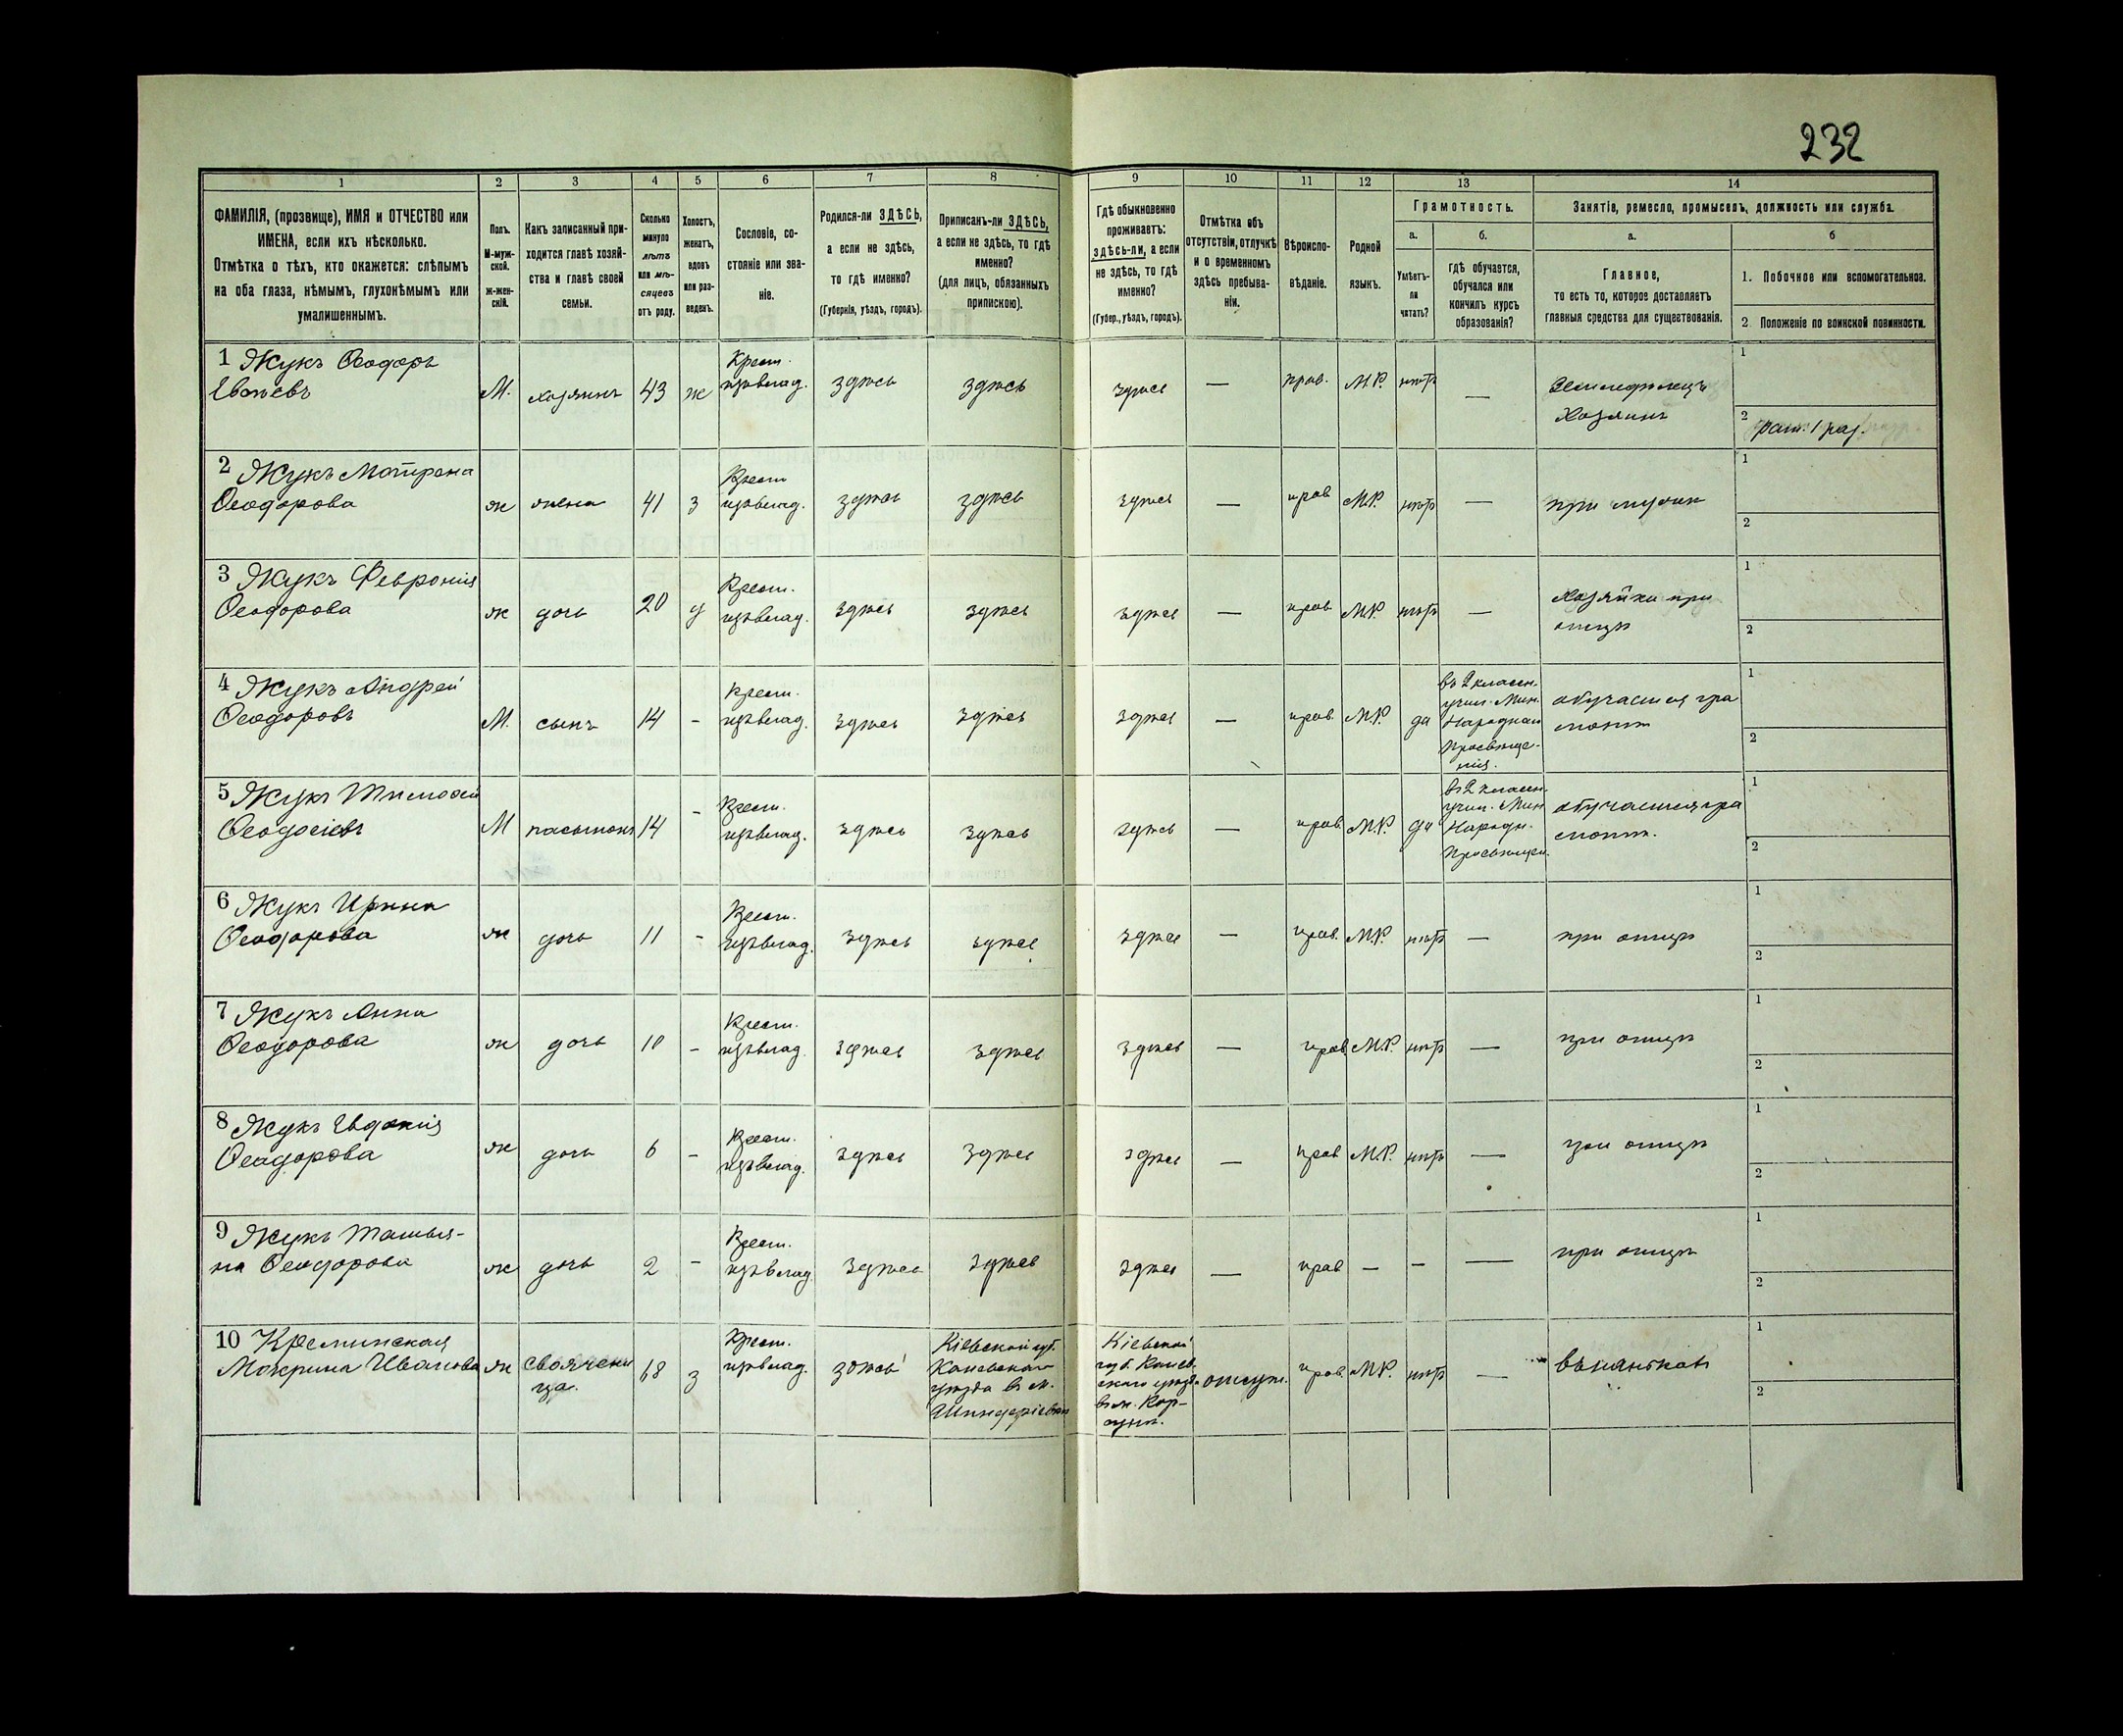 232
1
2
3
4
5
6
7
8
9
10
11
12
13
14
ФАМИЛІЯ, (прозвище), ИМЯ и ОТЧЕСТВО или
ИМЕНА, если ихъ нѣсколько.
Отмѣтка о тѣхъ, кто окажется: слѣпымъ
на оба глаза, нѣмымъ, глухонѣмымъ или
умалишеннымъ.
Полъ.
М-муж-
ской.
ж-жен-
скій.
Какъ записанный при-
ходится главѣ хозяй-
ства и главѣ своей
семьи.
Сколько
минуло
лѣтъ
или мѣ-
сяцевъ
отъ роду.
Холостъ,
женатъ,
вдовъ
или раз-
веденъ.
Сословіе, со-
стояніе или зва-
ніе.
Родился-ли ЗДѢСЬ,
а если не здѣсь,
то гдѣ именно?
(Губернія, уѣздъ, городъ).
Приписанъ-ли ЗДѢСЬ,
а если не здѣсь, то гдѣ
именно?
(для лицъ, обязанныхъ
припискою).
Гдѣ обыкновенно
проживаетъ:
здѣсь-ли, а если
не здѣсь, то гдѣ
именно?
(Губер., уѣздъ, городъ).
Отмѣтка объ
отсутствіи, отлучкѣ
и о временномъ
здѣсь пребыва-
ніи.
Вѣроиспо-
вѣданіе.
Родной
языкъ.
Грамотность.
а.
Умѣетъ-
ли
читать?
б.
гдѣ обучается,
обучался или
кончилъ курсъ
образованія?
Занятіе, ремесло, промыселъ, должность или служба.
а.
Главное,
то есть то, которое доставляетъ
главныя средства для существованія.
б
1. Побочное или вспомогательное.
2. Положеніе по воинской повинности.
1 Жукъ Ѳеодоръ
М. хозяинъ 43 ж
Крест.
здѣсь здѣсь здѣсь — прав. М.Р. нѣтъ —
Земледѣлецъ
Хозяинъ
1
2 рат. 1 раз.
2 Жукъ Матрона
Ѳеодорова
ж жена 41 з
Крест
здѣсь здѣсь здѣсь — прав М.Р. нѣтъ —
при мужѣ
1
2
3 Жукъ Февронія
Ѳеодорова
ж дочь 20 д
Крест.
здѣсь здѣсь здѣсь — прав М.Р. нѣтъ —
Хозяйка при
отцѣ
1
2
4 Жукъ Андрей
Ѳеодоровъ
М. сынъ 14 -
Крест.
здѣсь здѣсь здѣсь — прав М.Р. да
въ 2 классн.
учил. Мин.
Народнаго
Просвѣще-
нія.
обучается гра
мотѣ
1
2
5 Жукъ Тимоѳей
Ѳеодосіевъ
М пасынокъ 14 -
Крест.
здѣсь здѣсь здѣсь — прав. М.Р. да
въ 2 классн.
учил. Мин
Народн.
Просвѣщен.
обучается гра
мотѣ.
1
2
6 Жукъ Ирина
Ѳеодорова
ж дочь 11 -
Крест.
здѣсь здѣсь здѣсь — прав. М.Р. нѣтъ —
при отцѣ
1
2
7 Жукъ Анна
Ѳеодорова
ж дочь 10 -
Крест.
здѣсь здѣсь здѣсь — прав М.Р. нѣтъ —
при отцѣ
1
2
8 Жукъ Евдокія
Ѳеодорова
ж дочь 6 -
Крест.
здѣсь здѣсь здѣсь — прав М.Р. нѣтъ —
при отцѣ
1
2
9 Жукъ Татья-
на Ѳеодорова
ж дочь 2 -
Крест.
здѣсь здѣсь здѣсь — прав — — —
при отцѣ
1
2
10 Креминская
Макрина Иванова
ж своячени
ца.
18 з
Крест.
здѣсь
Кіевской губ.
Каневскаго
уѣзда въ м.
Кіевской
губ. Канев.
скаго уѣзд.
въ м. Кор-
сунѣ.
отсутс.
прав. М.Р. нѣтъ —
1
2